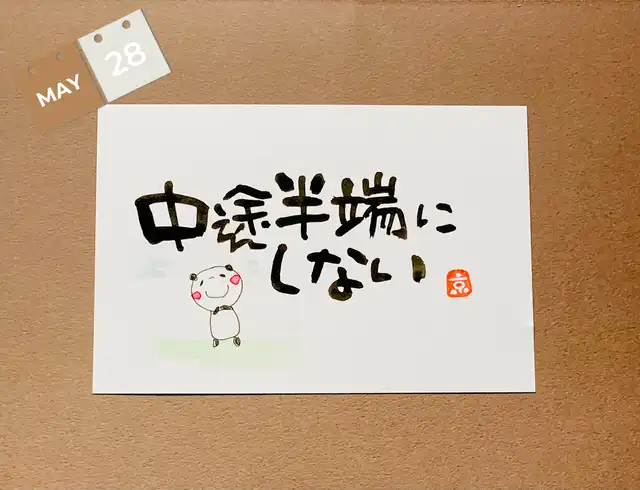 MAY
28
中途半端に
しない
京